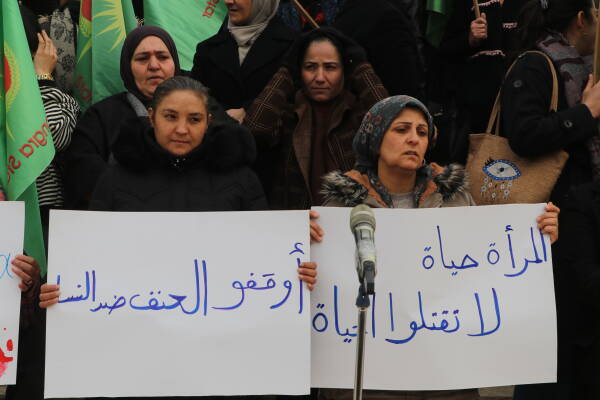 المرأة حياة
لا تقتلوا الحياة
أوقفو العنف ضد النسا